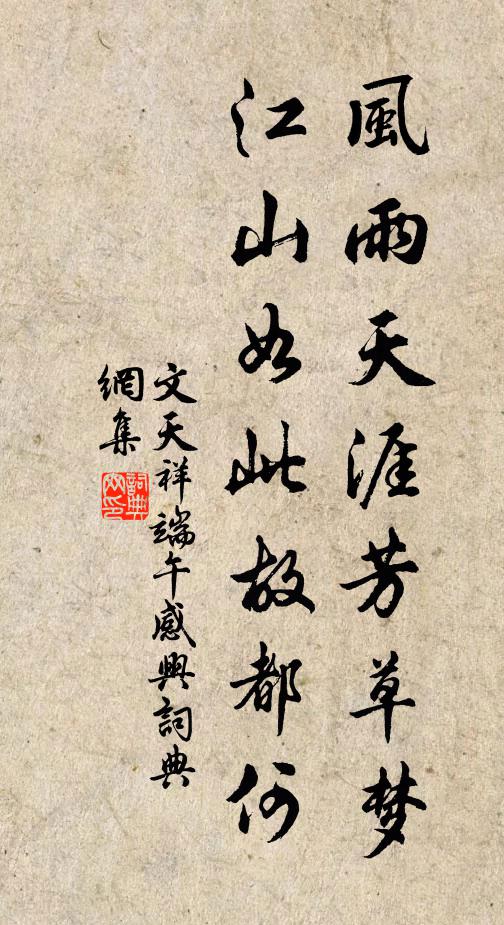 風雨天涯芳草梦
江山如此故都何
文天祥端午感興詞典
網集
詞典
网印